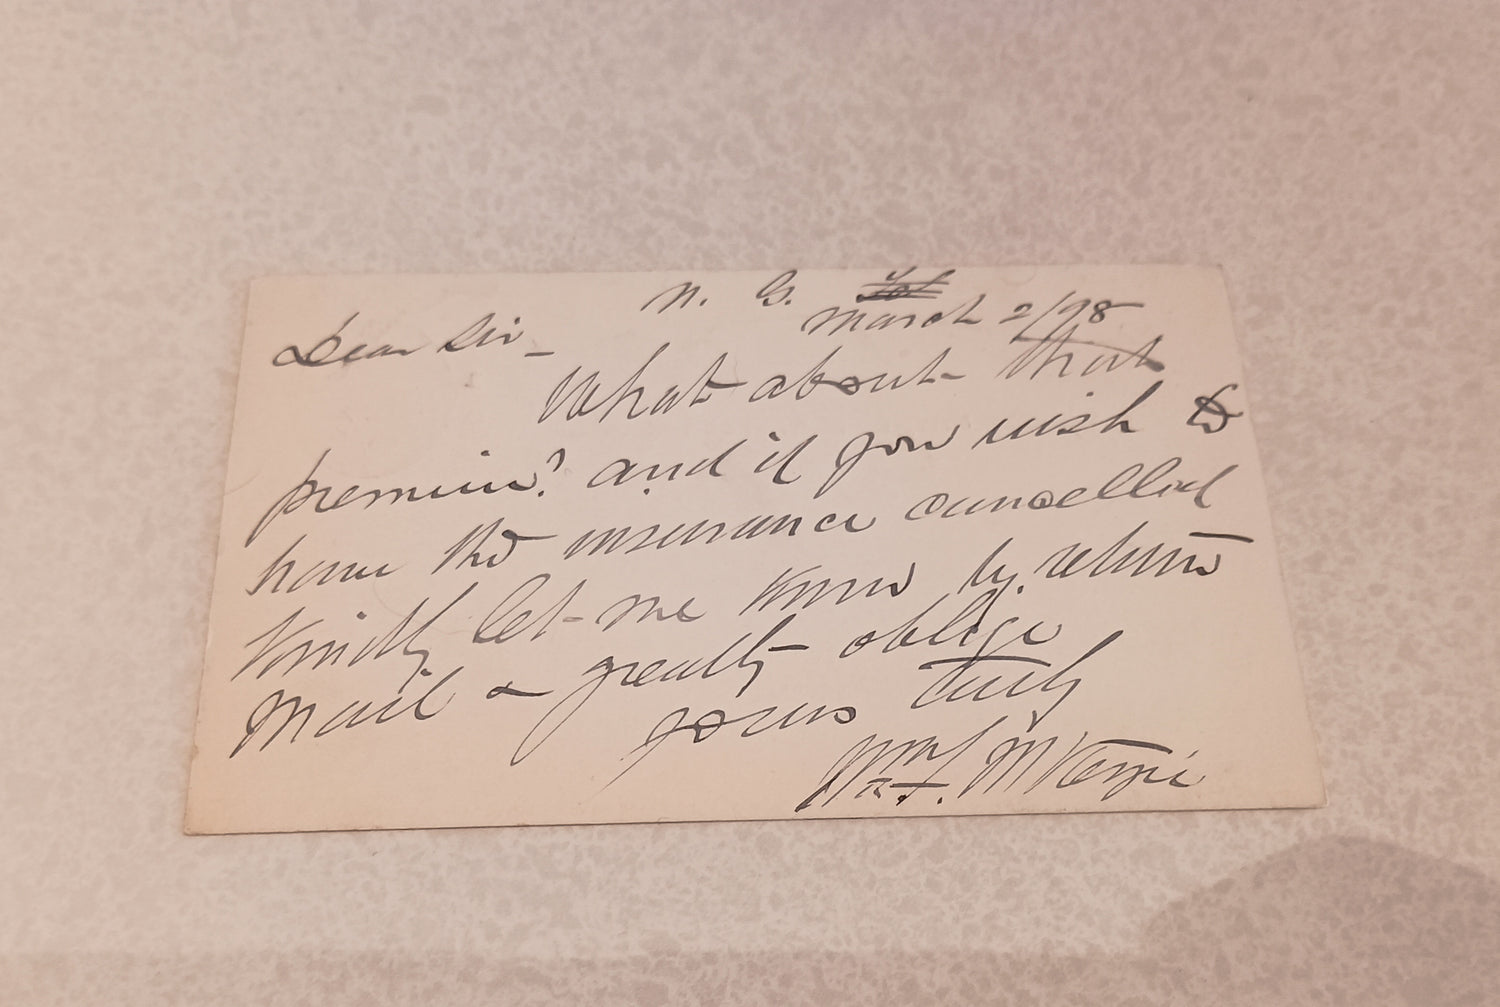 N. G.
March 2/98
Dear Sir -
What about that
premium? and if you wish to
have the insurance cancelled
kindly let me know by return
mail & greatly oblige
yours truly
Wm